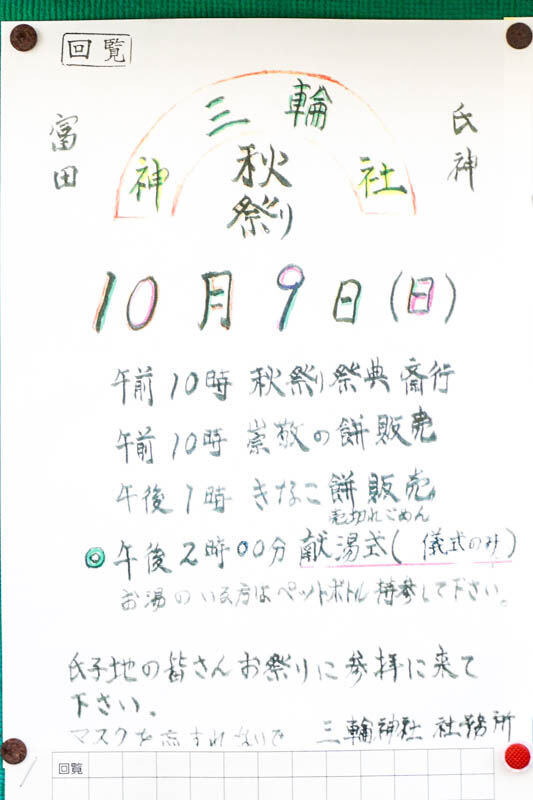 回覧
富田
氏神
三輪神社
秋祭り
10月9日(日)
午前10時 秋祭り祭典斎行
午前10時 崇敬の餅販売
午後1時 きなこ餅販売
売切れごめん
◎午後2時00分 献湯式(儀式のみ)
お湯のいる方はペットボトル持参して下さい。
氏子地の皆さんお祭りに参拝に来て
下さい。
マスクを忘すれないで 三輪神社 社務所
回覧